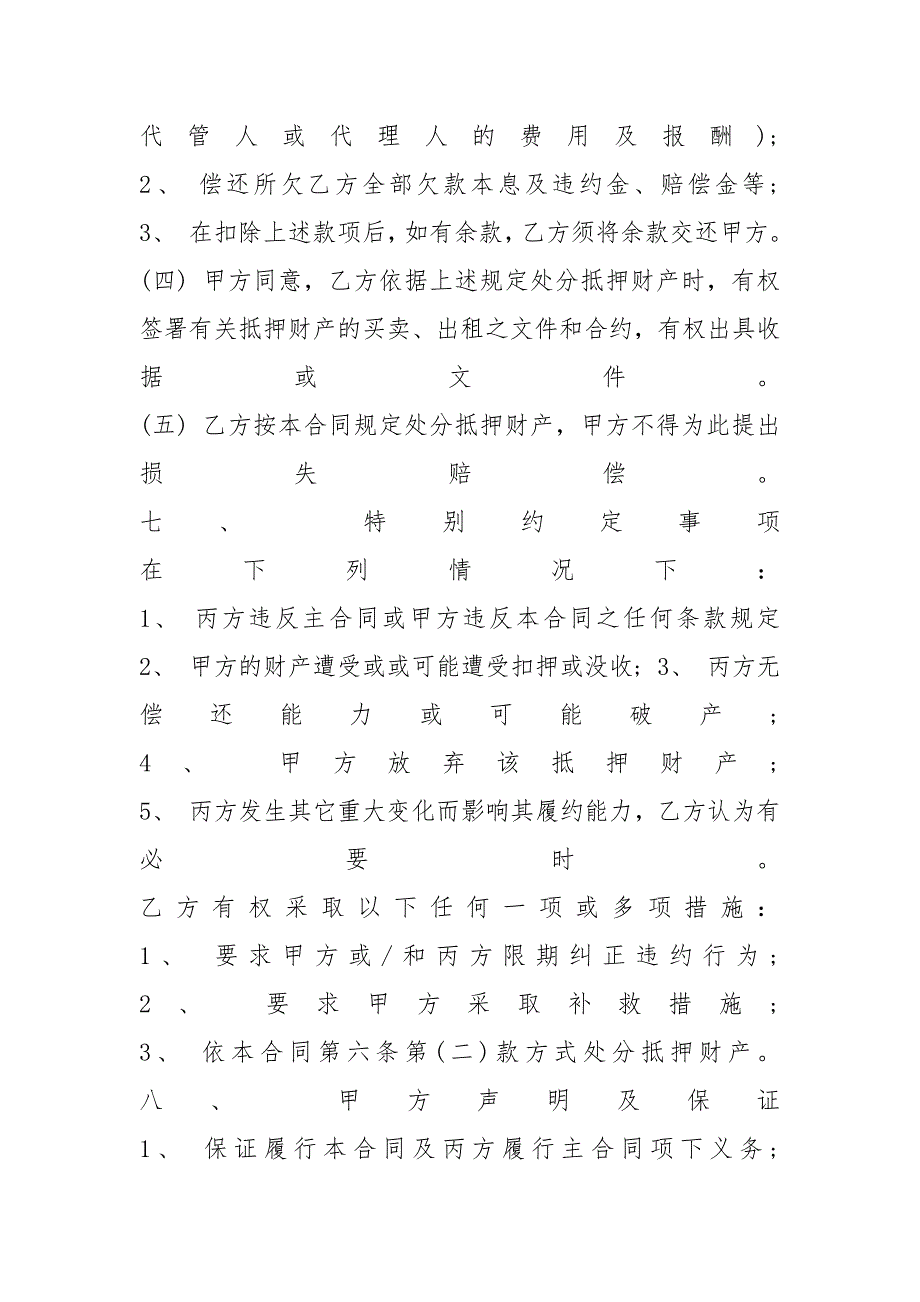 代管人或代理人的费用及报酬);
2、 偿还所欠乙方全部欠款本息及违约金、赔偿金等;
3、 在扣除上述款项后,如有余款,乙方须将余款交还甲方。
(四) 甲方同意,乙方依据上述规定处分抵押财产时,有权
签署有关抵押财产的买卖、出租之文件和合约,有权出具收
据或文件。
(五) 乙方按本合同规定处分抵押财产,甲方不得为此提出
损失赔偿。
七、 特别约定事项
在下列情况下:
1、 丙方违反主合同或甲方违反本合同之任何条款规定
2、 甲方的财产遭受或或可能遭受扣押或没收; 3、 丙方无
偿还能力或可能破产;
4、 甲方放弃该抵押财产;
5、 丙方发生其它重大变化而影响其履约能力,乙方认为有
必要时。
乙方有权采取以下任何一项或多项措施:
1、 要求甲方或/和丙方限期纠正违约行为;
2、 要求甲方采取补救措施;
3、 依本合同第六条第(二)款方式处分抵押财产。
八、 甲方声明及保证
1、 保证履行本合同及丙方履行主合同项下义务;